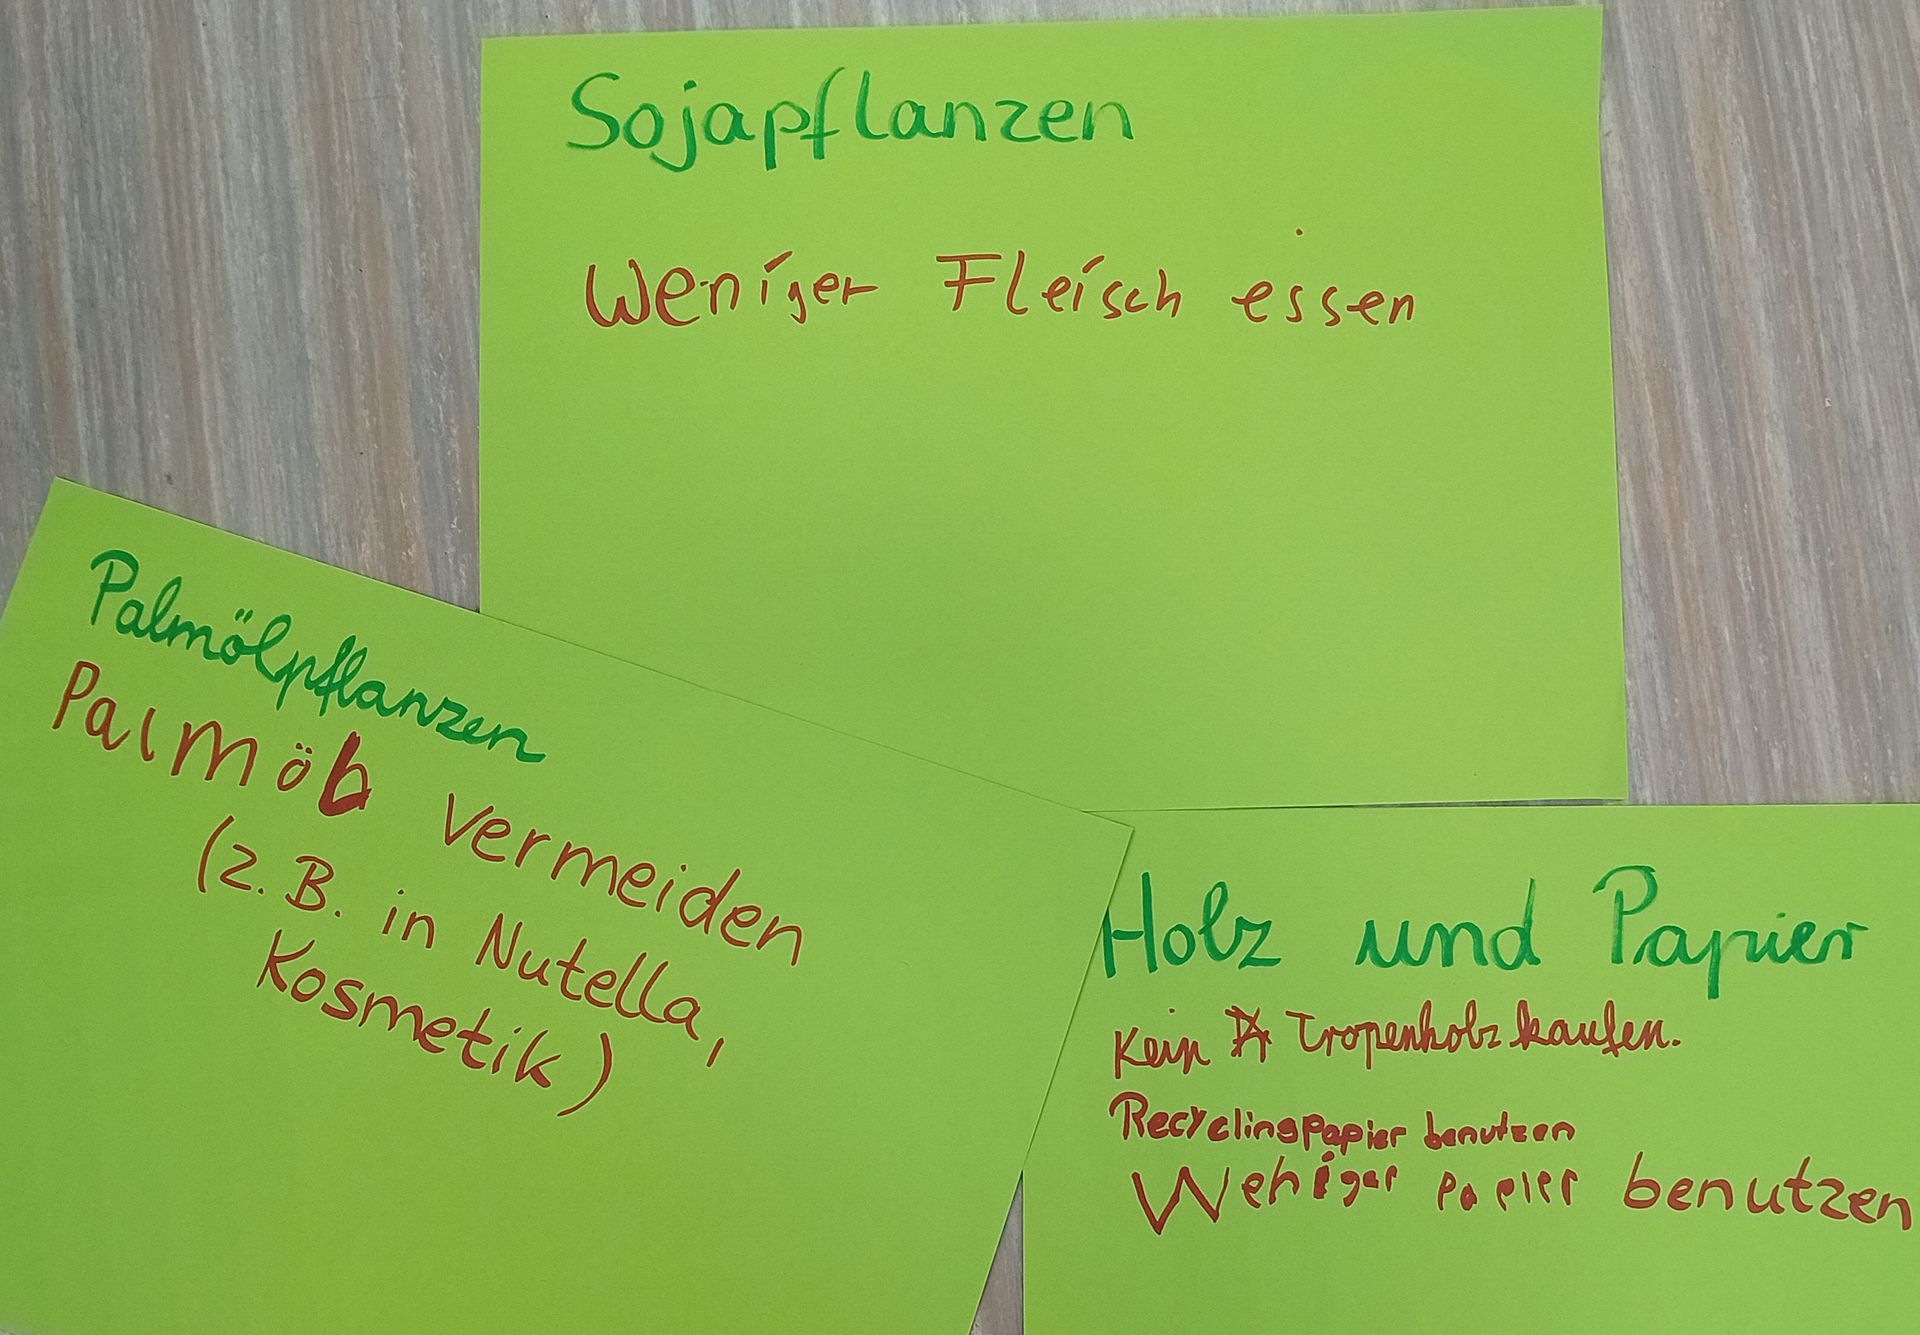 Sojapflanzen
Weniger Fleisch essen
Palmölpflanzen
Palmöl vermeiden
(z. B. in Nutella,
Kosmetik)
Holz und Papier
Kein Tropenholz kaufen.
Recyclingpapier benutzen
Weniger Papier benutzen